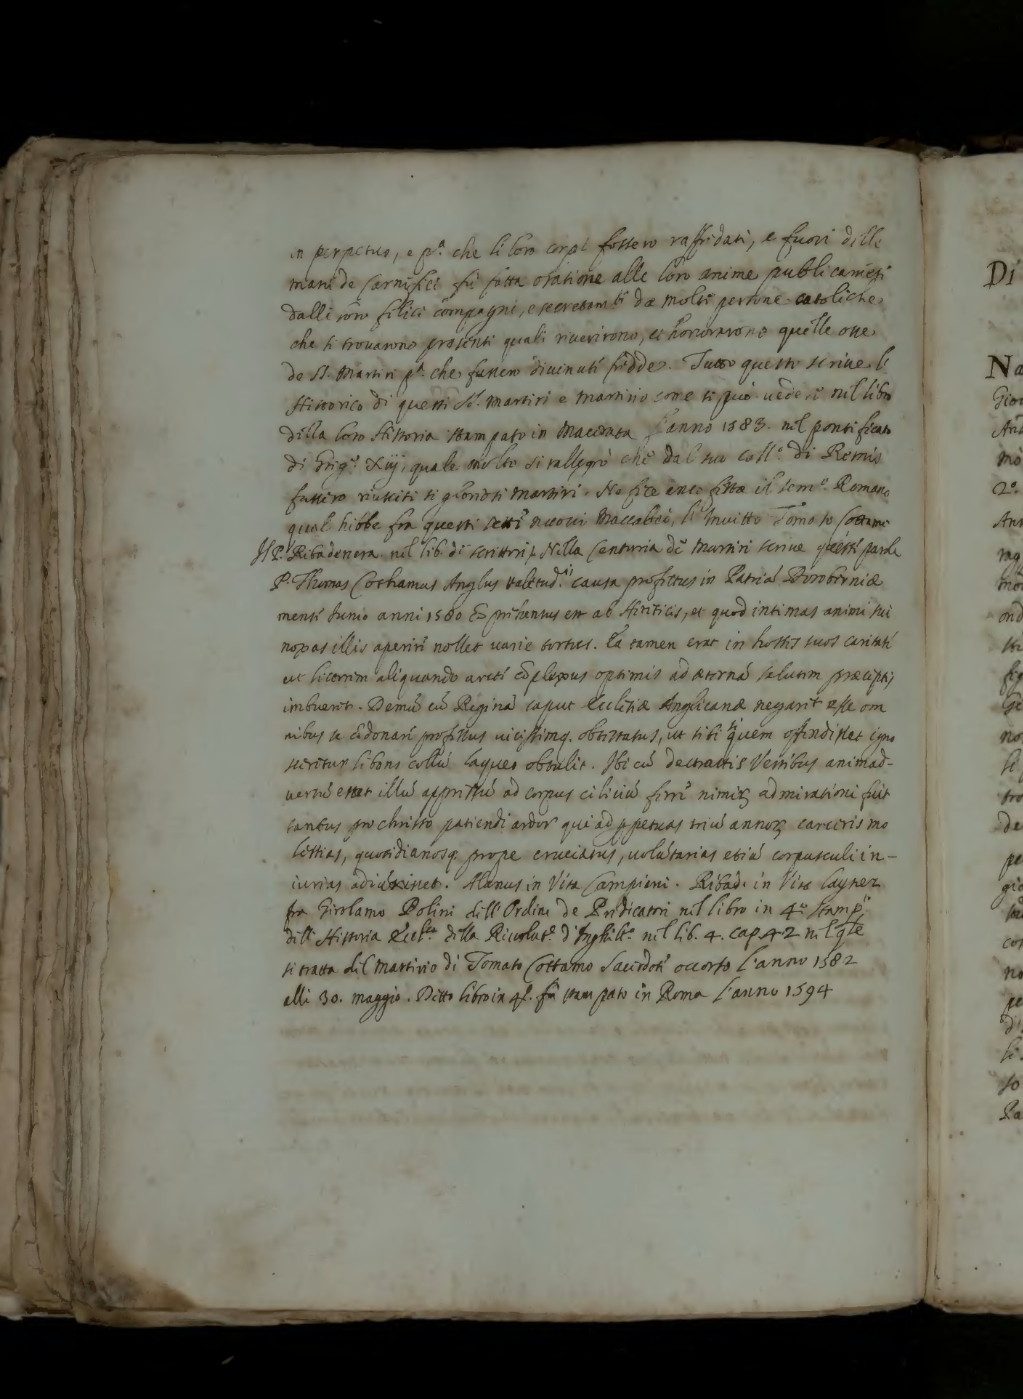 in perpetuo, e p.ª che li loro corpi fossero raffridati, e fuori delle
mani de Carnifici fù fatta oratione alle loro anime publicamẽte
dalli loro felici compagni, e secretamᵗᵉ da molte persone catoliche
che si trovarono presenti quali riverirono, et honorarono quelle osse
de S.ᵗⁱ Martiri p.ª che fussero divenuti fridde. Tutto questo scrive l'
Historico di questi S.ᵗⁱ martiri e martirio come si può vedere nel libro
della loro Historia stampato in Macerata l'anno 1583. nel pontificato
di Greg.º Xiij, quale molto si rallegrò che dal suo Coll.º di Remis
fussero riusciti si gloriosi martiri. Ne fece anco festa il Sem.º Romano
qual hebbe fra questi sette nuovi Maccabei, l'invitto Tomaso Cottamo
Il P. Ribadenera nel lib. di scrittori, Nella Centuria de Martiri scrive queste parole
P. Thomas Cothamus Anglus valetud.ⁿⁱˢ causa profectus in Patriã Doroberniæ
mense Junio anni 1580 Comprehensus est ab Hæreticis, et quod intimas animi sui
noxas illis aperire nollet varie tortus. Ea tamen erat in hostes suos caritate
ut licorem aliquando arcte cõplexus optimis ad æternã salutem præceptis
imbuerit. Demũ cũ Reginã caput Ecclesiæ Anglicanæ negarit esse om
nibus se cõdonare professus vicissimq. obtestatus, ut sibi si quem offendisset igno
sceretur libens collũ laqueo obtulit. Ibi cũ detractis Vestibus animad-
versũ esset illũ appressũ ad corpus ciliciũ ferre nimirũ admirationi fuit
tantus pro christo patiendi ardor qui ad perpetuas triũ annorũ carceris mo
lestias, quotidianosq. prope cruciatus, volũtarias etiã corpusculi in-
iurias adiũxisset. Alanus in Vita Campiani. Ribad. in Vita Laynez
fra Girolamo Polini dell'Ordine de Predicatori nel libro in 4.º stamp.º
dell'Historia Eccl.ᶜᵃ della Rivolut.ᵉ d'Inghilt.ª nel lib. 4. cap. 42 nel qle
si tratta del Martirio di Tomaso Cottamo Sacerdote occorso l'anno 1582
alli 30. maggio. Detto libro in 4º. fu stampato in Roma l'anno 1594
Di
Na
Giov
mo
2º.
mo
ond
no
de
gio
no
Pa